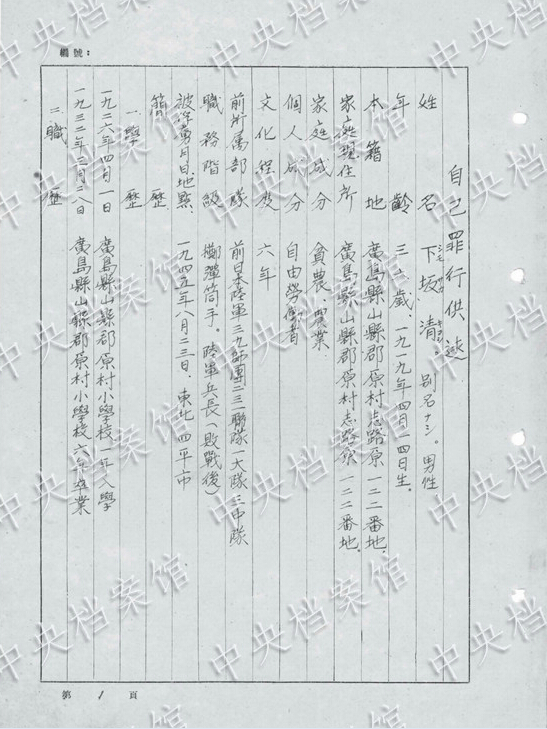 編號：
自己罪行供述
姓名 下坂清 別名ナシ。男性
シモ サカ キヨシ
年齡 三十歳、一九一九年四月一四日生。
本籍地 廣島縣山縣郡原村志路原一二二番地.
家庭現住所 廣島縣山縣郡原村志路原一二二番地.
家庭成分 貧農、農業
個人成分 自由勞働者
文化程度 六年
前所属部隊 前日本陸軍三九師團二三一聯隊一大隊三中隊
職務階級 擲彈筒手。陸軍兵長(敗戰後)
被俘 月日地點. 一九四五年八月二三日、東北 四平市
簡歷
一學歷
一九二六年四月一日 廣島縣山縣郡原村小學校一年入學
一九三二年三月二八日 廣島縣山縣郡原村小學校六年卒業
二職歷
第 1 頁
中央档案馆